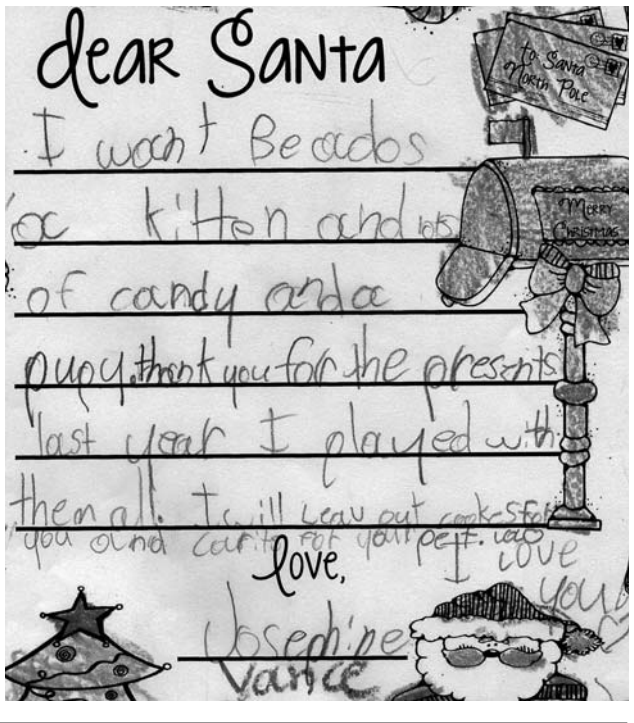 dear Santa
to Santa
North Pole
I want Beados
a kitten and lots
Merry
Christmas
of candy and a
pupy. thank you for the presents
last year I played with
them all. I will leav out cookes for
you and carits for your pet.
I love
you
love,
Josephine
Vance